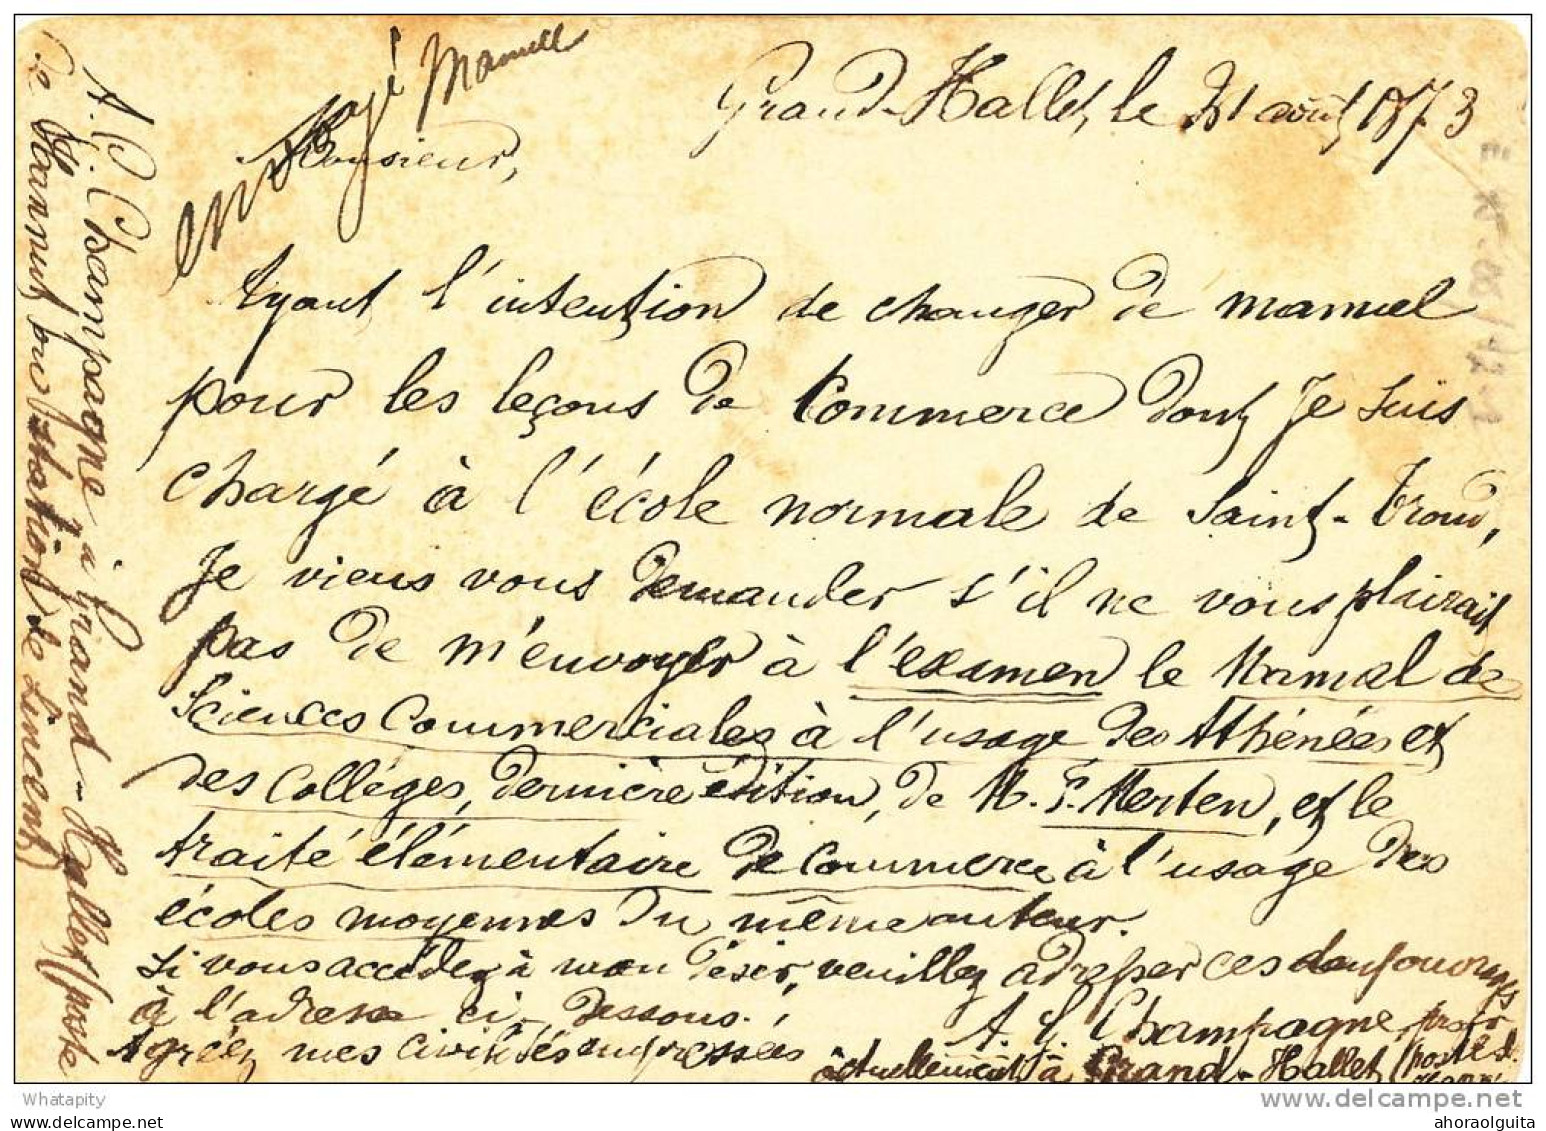 envoyé Manuel
Grand-Hallet, le 31 août 1873
Monsieur,
Ayant l'intention de changer de manuel
pour les leçons de Commerce dont Je suis
chargé à l'école normale de Saint-Trond,
Je viens vous demander s'il ne vous plairait
pas de m'envoyer à l'examen le Manuel de
Sciences Commerciales à l'usage des Athénées et
des Collèges, dernière édition, de M. F. Merten, et le
traité élémentaire de Commerce à l'usage des
écoles moyennes du même auteur.
Si vous accédez à mon désir, veuillez adresser ces deux ouvrages
à l'adresse ci-dessous.
Agréez mes civilités empressées
A. J. Champagne, profr
actuellement à Grand-Hallet (poste d.
Hann
A. J. Champagne à Grand-Hallet (poste
de Hannut, pour station de Lincent)
Whatapity
delcampe.net
ahoraolguita